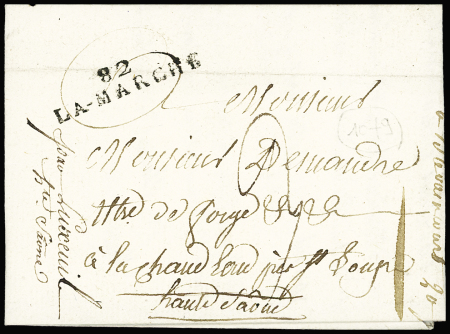 82
LA-MARCHE
Monsieur
Monsieur Demandre
Mtre de forge
à la chaudeau par St Loupe
haute Saône
pour Luxeuil
hte Saône